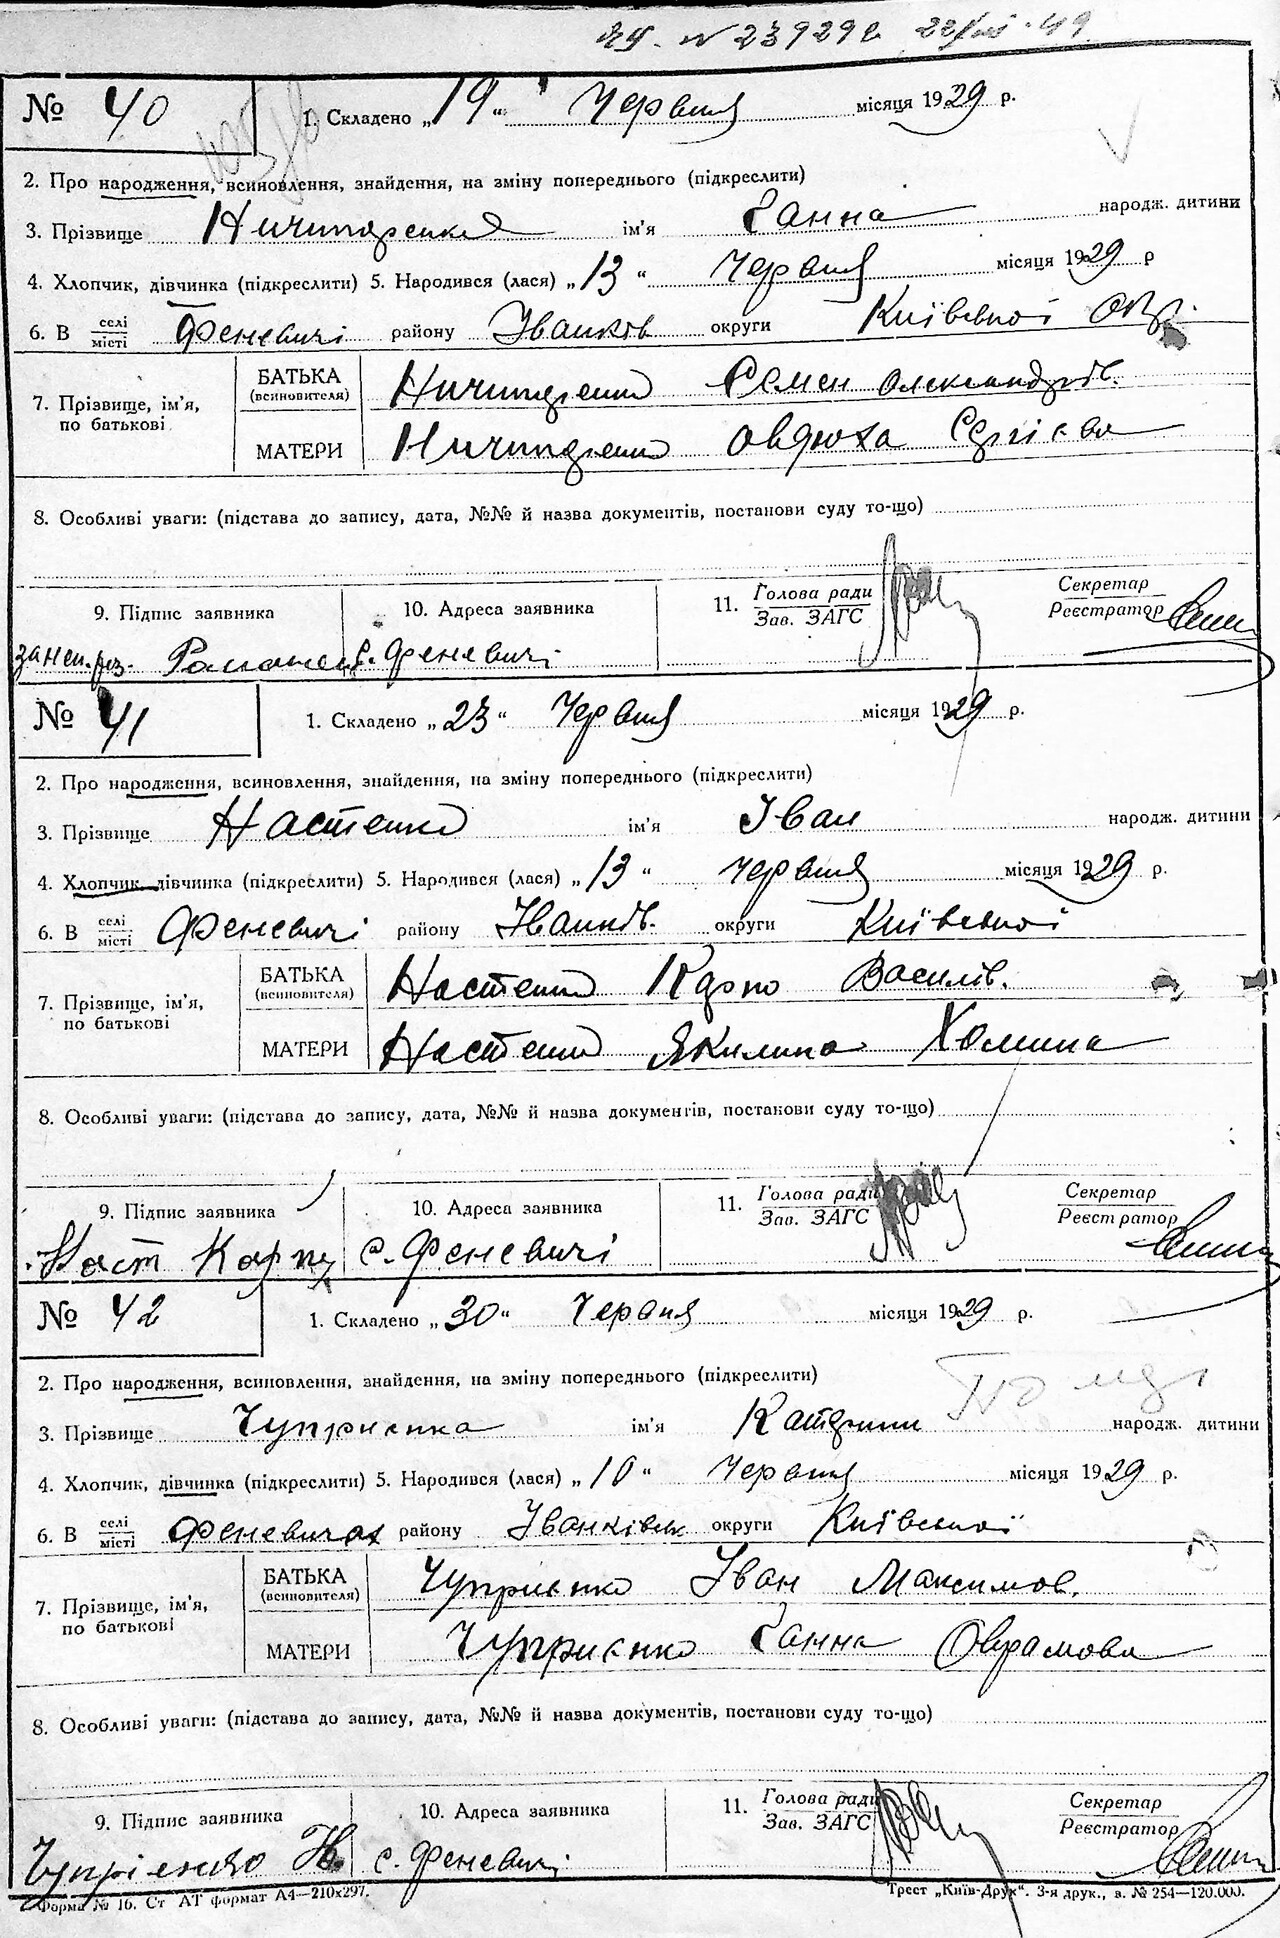 № 239292 22/VIII-49
№ 40 1. Складено „19“ Червня місяця 1929 р.
2. Про народження, всиновлення, знайдення, на зміну попереднього (підкреслити)
3. Прізвище Ничипоренко ім'я Ганна народж. дитини
4. Хлопчик, дівчинка (підкреслити) 5. Народився (лася) „13“ Червня місяця 1929 р
6. В селі/місті Феневичі району Іванків округи Київської Окр.
7. Прізвище, ім'я, по батькові
БАТЬКА (всиновителя) Ничипоренко Семен Олександрів.
МАТЕРИ Ничипоренко Овдюха Сергієва
8. Особливі уваги: (підстава до запису, дата, №№ й назва документів, постанови суду то-що)
9. Підпис заявника 10. Адреса заявника 11. Голова ради Зав. ЗАГС Секретар Реєстратор
с. Феневичі
№ 41 1. Складено „23“ Червня місяця 1929 р.
2. Про народження, всиновлення, знайдення, на зміну попереднього (підкреслити)
3. Прізвище Настенко ім'я Іван народж. дитини
4. Хлопчик, дівчинка (підкреслити) 5. Народився (лася) „13“ Червня місяця 1929 р.
6. В селі/місті Феневичі району Іванків. округи Київської
7. Прізвище, ім'я, по батькові
БАТЬКА (всиновителя) Настенко Карпо Василів.
МАТЕРИ Настенко Якилина Хомина
8. Особливі уваги: (підстава до запису, дата, №№ й назва документів, постанови суду то-що)
9. Підпис заявника 10. Адреса заявника 11. Голова ради Зав. ЗАГС Секретар Реєстратор
Наст Карпо с. Феневичі
№ 42 1. Складено „30“ Червня місяця 1929 р.
2. Про народження, всиновлення, знайдення, на зміну попереднього (підкреслити)
3. Прізвище Чуприєнко ім'я Катерини народж. дитини
4. Хлопчик, дівчинка (підкреслити) 5. Народився (лася) „10“ Червня місяця 1929 р.
6. В селі/місті Феневичах району Іванківськ округи Київської
7. Прізвище, ім'я, по батькові
БАТЬКА (всиновителя) Чуприєнко Іван Максимов.
МАТЕРИ Чуприєнко Ганна Оврамова
8. Особливі уваги: (підстава до запису, дата, №№ й назва документів, постанови суду то-що)
9. Підпис заявника 10. Адреса заявника 11. Голова ради Зав. ЗАГС Секретар Реєстратор
Чупріенко с. Феневичі
Форма № 16. Ст АТ формат А4—210х297. Трест „Київ-Друк“. 3-я друк., з. № 254—120.000.